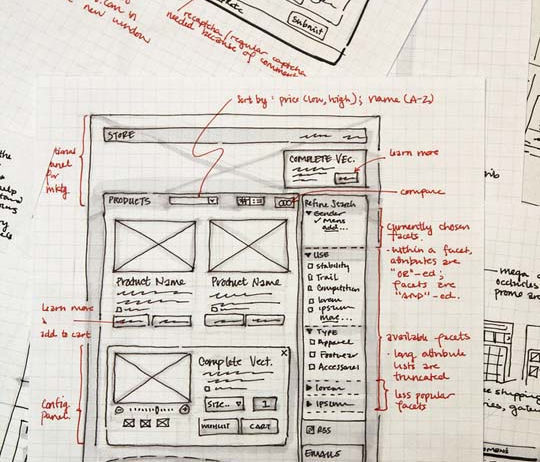 submit
new window
recaptcha/regular captcha
needed because of comment
sort by: price (low, high); name (A-Z)
STORE
COMPLETE VEC.
learn more
compare
PRODUCTS
Refine Search
Gender
✓ Mens
add...
currently chosen
facets.
- within a facet,
attributes are
"OR"-ed;
facets are
"AND"-ed.
USE
stability
Trail
Competition
lorem
ipsum
more...
Product Name
Product Name
learn more
&
add to cart
TYPE
Apparel
Footwear
Accessories
available facets
- long attribute
lists are
truncated
lorem
ipsum
less popular
facets
Config.
panel.
Complete Vect.
X
SIZE..
1
WISHLIST
CART
RSS
EMAILS
mega